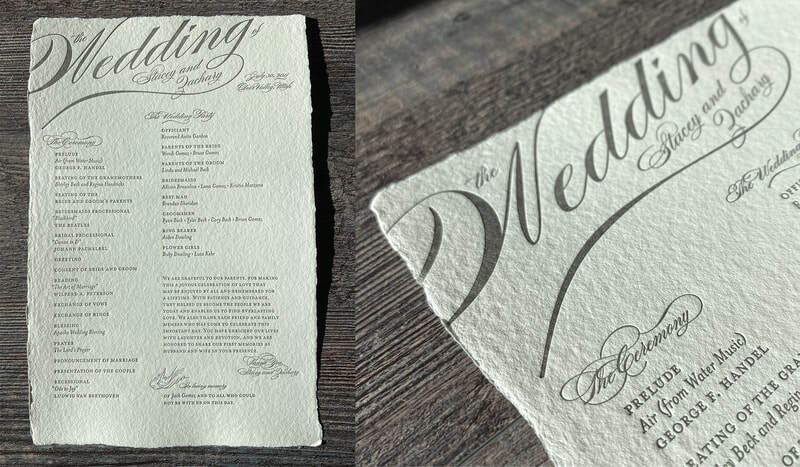 the Wedding of
Stacey and
Zachary
July 20,
The Ceremony
PRELUDE
Air (from Water Music)
GEORGE F. HANDEL
SEATING OF THE GRANDMOTHERS
Shirley Beck and Regina Hendricks
SEATING OF THE
BRIDE AND GROOM'S PARENTS
BRIDESMAIDS PROCESSIONAL
"Blackbird"
THE BEATLES
BRIDAL PROCESSIONAL
"Canon in D"
JOHANN PACHELBEL
GREETING
CONSENT OF BRIDE AND GROOM
READING
"The Art of Marriage"
WILFERD A. PETERSON
EXCHANGE OF VOWS
EXCHANGE OF RINGS
BLESSING
Apache Wedding Blessing
PRAYER
The Lord's Prayer
PRONOUNCEMENT OF MARRIAGE
PRESENTATION OF THE COUPLE
RECESSIONAL
"Ode to Joy"
LUDWIG VAN BEETHOVEN
The Wedding Party
OFFICIANT
Reverend Anita Gordon
PARENTS OF THE BRIDE
Wendi Gomez • Brian Gomez
PARENTS OF THE GROOM
Linda and Michael Beck
BRIDESMAIDS
Allison Brownlow • Lana Gomez • Kristin Martinez
BEST MAN
Brandon Sheridan
GROOMSMEN
Ryan Beck • Tyler Beck • Cory Beck • Brian Gomez
RING BEARER
Aiden Dowling
FLOWER GIRLS
Ruby Dowling • Luca Kehr
WE ARE GRATEFUL TO OUR PARENTS, FOR MAKING
THIS A JOYOUS CELEBRATION OF LOVE THAT
MAY BE ENJOYED BY ALL AND REMEMBERED FOR
A LIFETIME. WITH PATIENCE AND GUIDANCE,
THEY HELPED US BECOME THE PEOPLE WE ARE
TODAY AND ENABLE US TO FIND EVERLASTING
LOVE. WE ALSO THANK EACH FRIEND AND FAMILY
MEMBER WHO HAS COME TO CELEBRATE THIS
IMPORTANT DAY. YOU HAVE ENRICHED OUR LIVES
WITH LAUGHTER AND DEVOTION, AND WE ARE
HONORED TO SHARE OUR FIRST MEMORIES AS
HUSBAND AND WIFE IN YOUR PRESENCE.
Stacey and Zachary
In loving memory
OF Jack Gomez AND TO ALL WHO COULD
NOT BE WITH US ON THIS DAY.
the Wedding of
Stacey and
Zachary
The Wedding
OFFI
The Ceremony
PRELUDE
Air (from Water Music)
GEORGE F. HANDEL
EATING OF THE GRA
Beck and Regin
OF